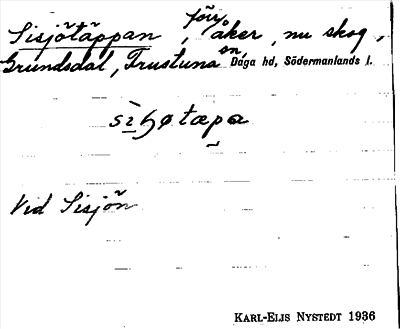 Sisjötäppan, förr åker, nu skog,
Grundsdal, Trustuna sn, Daga hd, Södermanlands l.
Vid Sisjön
KARL-EIJS NYSTEDT 1936